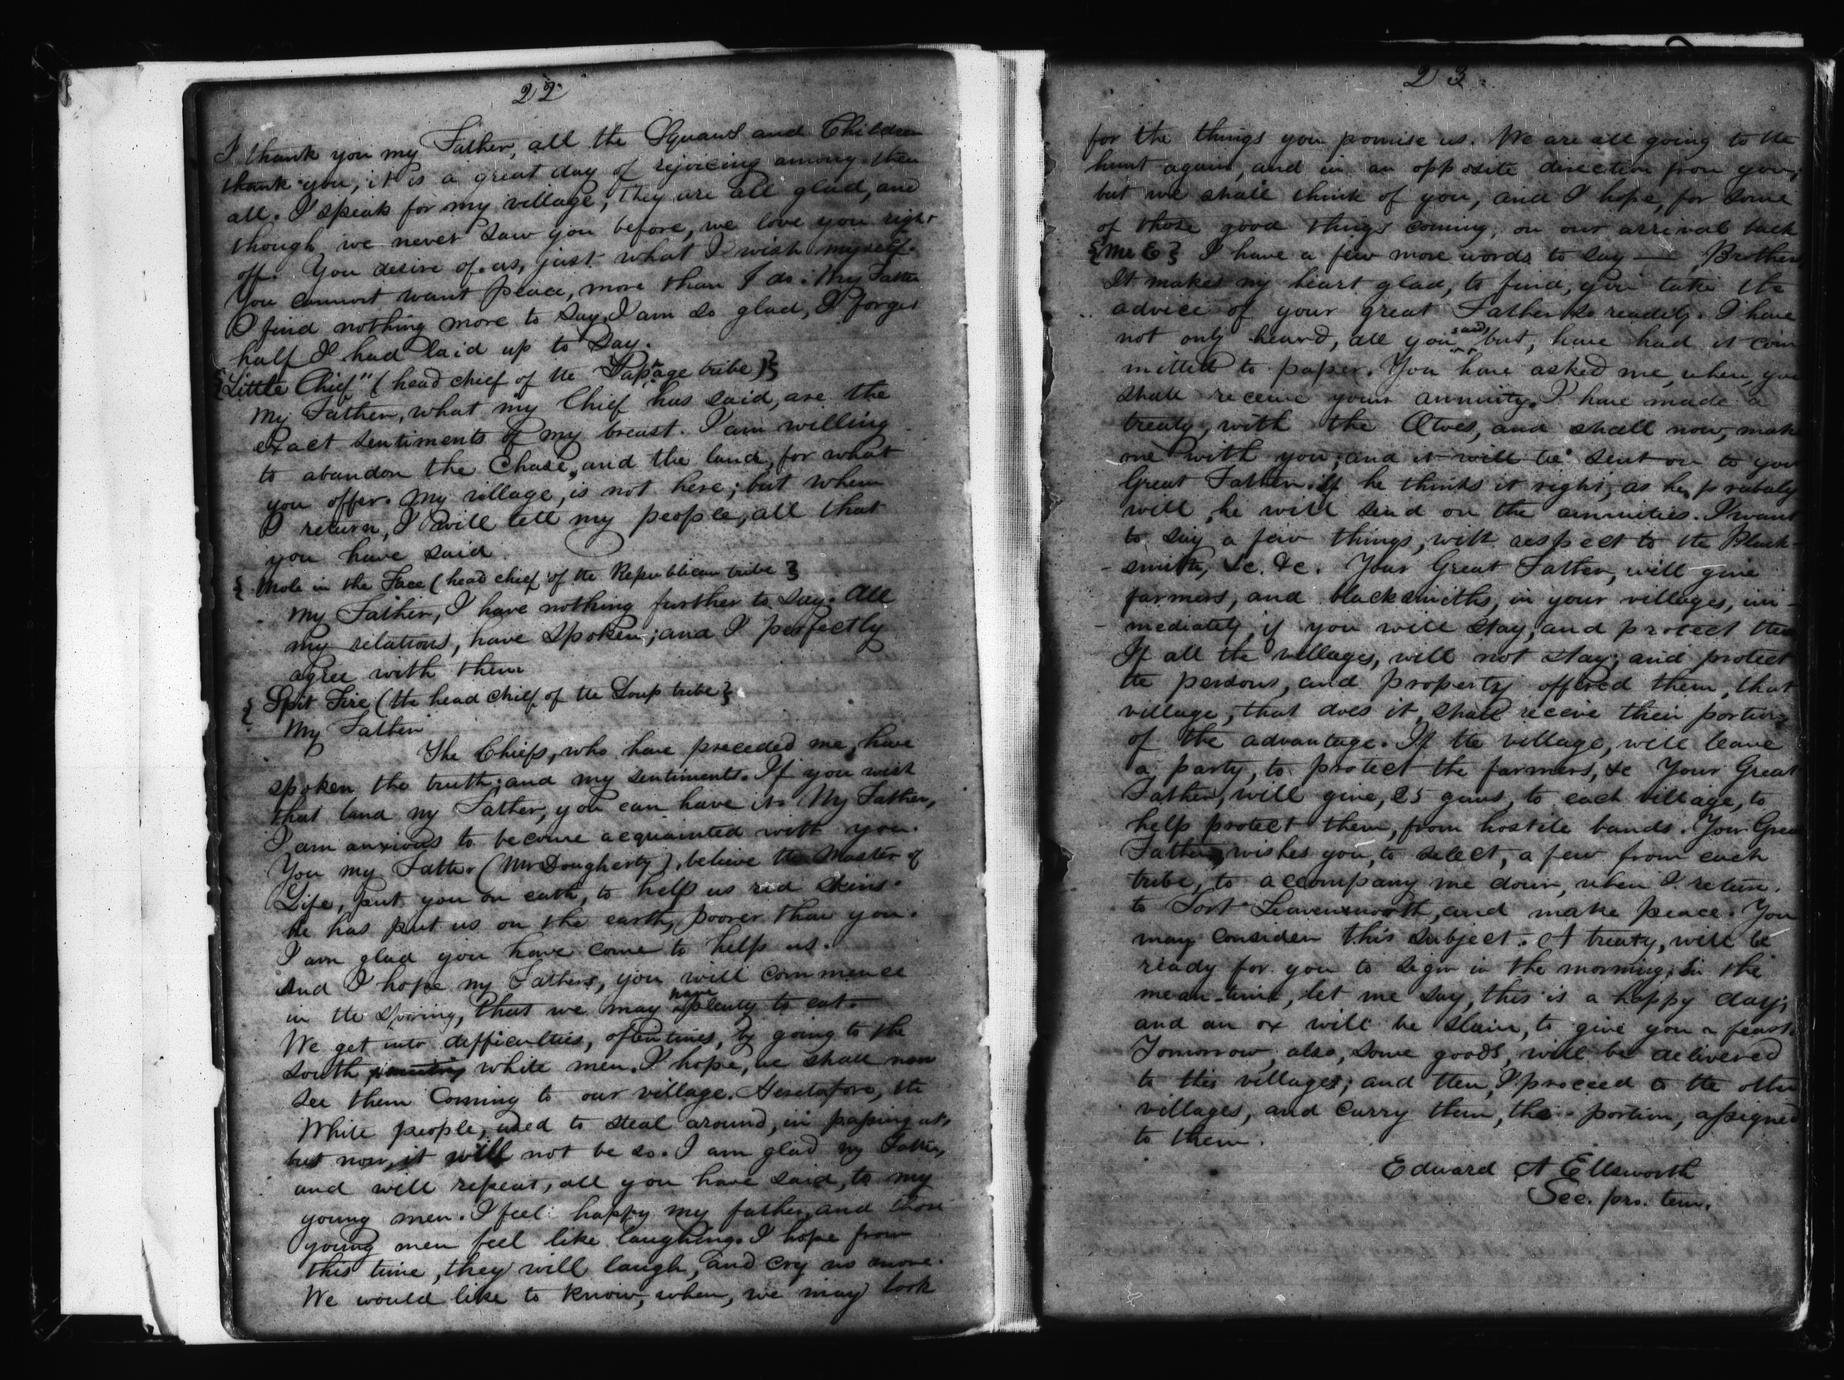 22
I thank you my Father, all the Squaws and Children
thank you, it is a great day of rejoicing among them
all. I speak for my village, they are all glad, and
though we never saw you before, we love you right
off. You desire of us, just what I wish myself.
You cannot want Peace, more than I do. My Father
I find nothing more to say, I am so glad, I forget
half I had laid up to say.
{Little Chief" (head chief of the Papage tribe)}
My Father, what my Chief has said, are the
exact sentiments of my breast. I am willing
to abandon the Chase, and the land, for what
you offer. My village, is not here; but when
I return, I will tell my people, all that
you have said
{Mole in the Face (head chief of the Republican tribe}
My Father, I have nothing further to say. All
my relations, have spoken; and I perfectly
agree with them
{Spit Fire (the head chief of the Loup tribe}
My Father
The Chiefs, who have preceded me, have
spoken the truth; and my sentiments. If you wish
that land my Father, you can have it. My Father,
I am anxious to become acquainted with you.
You my Father (Mr Dougherty) believe the Master of
Life, put you on earth, to help us red skins.
he has put us on the earth, poorer than you.
I am glad you have come to help us.
And I hope my Fathers, you will commence
in the Spring, that we may have plenty to eat.
We get into difficulties, oftentimes, by going to the
south white men. I hope, we shall now
see them Coming to our village. Heretofore, the
White people, used to steal around, in passing us,
but now, it will not be so. I am glad my Father,
and will repeat, all you have said, to my
young men. I feel happy my father, and those
young men feel like laughing. I hope from
this time, they will laugh, and cry no more.
We would like to know, when, we may look
23.
for the things you promise us. We are all going to the
hunt again, and in an opposite direction from you,
but we shall think of you, and I hope, for some
of those good things coming, on our arrival back
{Mr E} I have a few more words to say — Brothers
It makes my heart glad, to find, you take the
advice of your great Father so readily. I have
not only heard, all you said, but, have had it com
mitted to paper. You have asked me, when, you
shall receive your annuity. I have made a
treaty, with the Otoes, and shall now, make
one with you; and it will be sent on to your
Great Father. If he thinks it right, as he probably
will, he will send on the annuities. I want
to say a few things, with respect to the Black-
smith, &c. &c. Your Great Father, will give
farmers, and blacksmiths, in your villages, im-
mediately, if you will stay, and protect them
If all the villages, will not stay; and protect
the persons, and property offered them, that
village, that does it, shall receive their portion
of the advantage. If the village, will leave
a party, to protect the farmers, &c Your Great
Father, will give, 25 guns, to each village, to
help protect them, from hostile bands. Your Great
Father, wishes you, to select, a few from each
tribe, to accompany me down, when I return.
to Fort Leavensworth, and make peace. You
may consider this subject. A treaty, will be
ready for you to sign in the morning; In the
mean-time, let me say, this is a happy day;
and an ox will be slain, to give you a feast.
Tomorrow, also, some goods, will be delivered
to this villages; and then, I proceed to the other
villages, and carry them, the portion, assigned
to them.
Edward A Ellsworth
Sec. pro. tem.